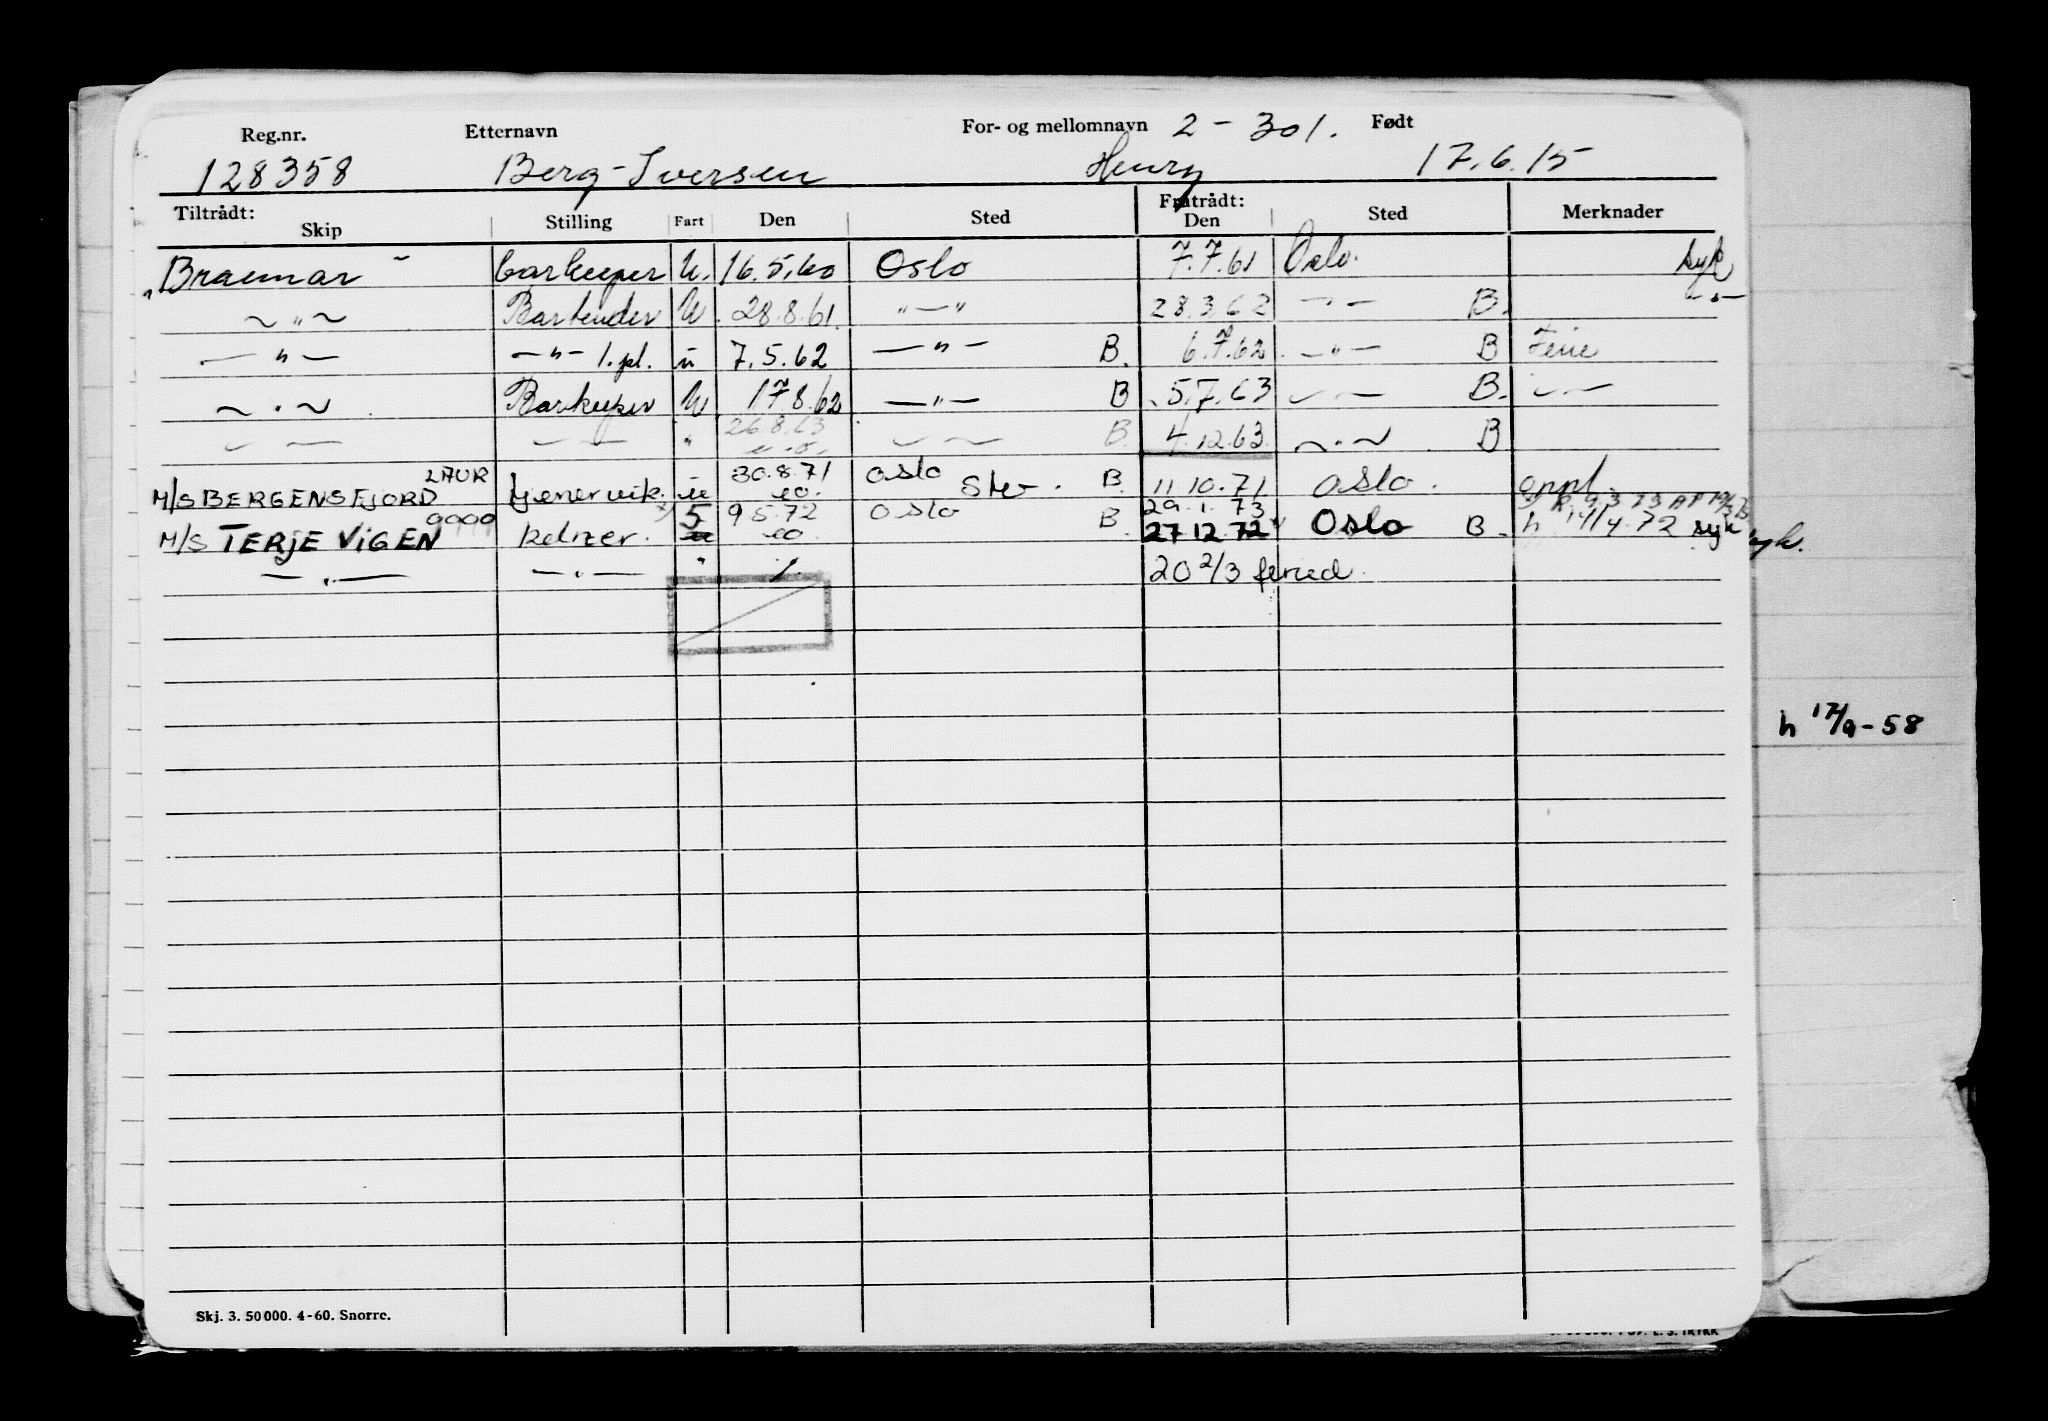 Reg.nr. Etternavn For- og mellomnavn 2-301. Født
128358 Berg-Iversen Henry 17.6.15
Tiltrådt: Fratrådt:
Skip Stilling Fart Den Sted Den Sted Merknader
Braemar barkeeper U. 16.5.60 Oslo 7.7.61 Oslo. syk
— " — Bartender U 28.8.61. " — " 28.3.62 — " — B. — " —
— " — — " — 1.pl. u 7.5.62 — " — B. 6.7.62 — " — B Ferie
— " — Barkeeper U 17.8.62 — " — B 5.7.63 — " — B. — " —
— " — — " — " 26.8.63 — " — B. 4.12.63. — " — B
LAUR 30.8.71 Oslo
M/S BERGENSFJORD tjenervik. u eo. Stev. B. 11.10.71 Oslo. oppl.
9999 5 9 5.72 Oslo B 29.1.73
M/S TERJE VIGEN kelner. eo 27 12 72 Oslo B. h 14/4.72 syk
— " — — " — " 20 2/3 feried.
h 17/9-58
Skj. 3. 50 000. 4-60. Snorre.